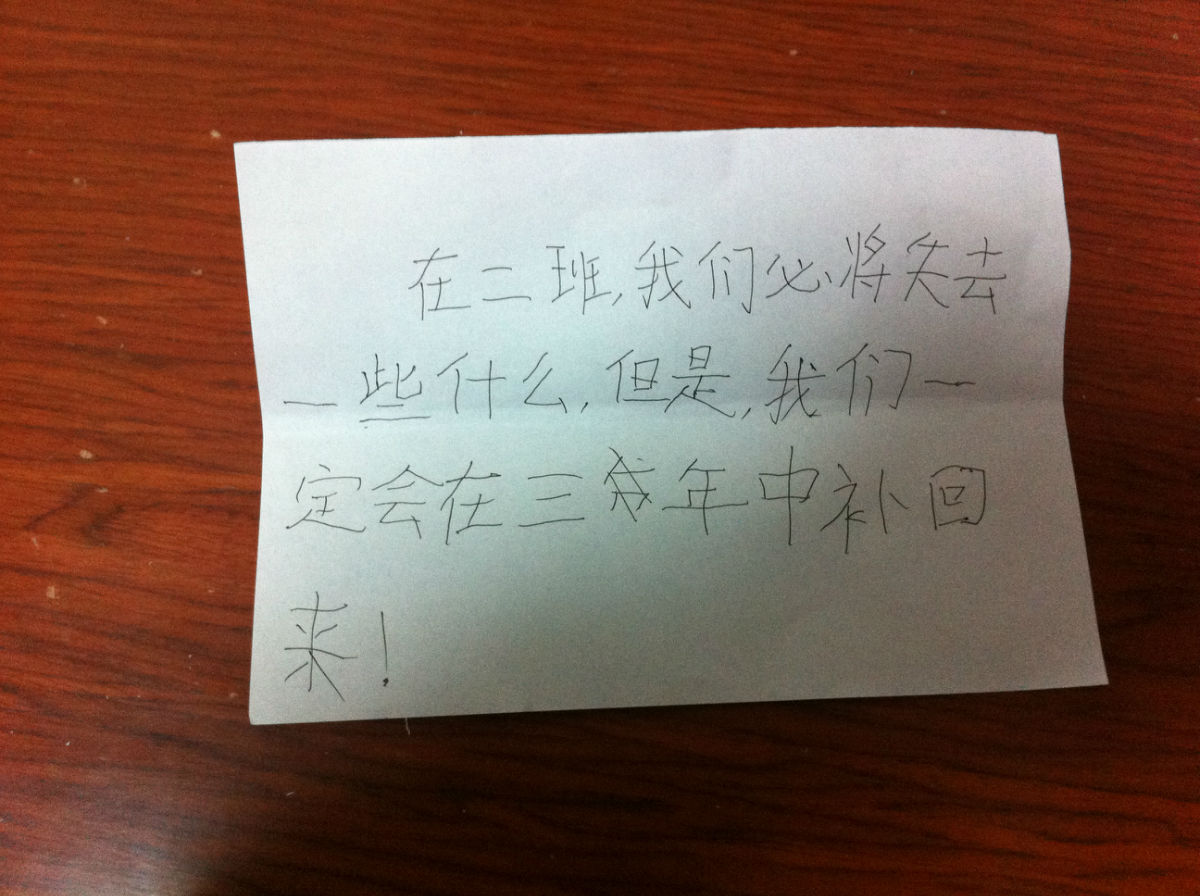 在二班,我们必将失去
一些什么,但是,我们一
定会在三年中补回
来!